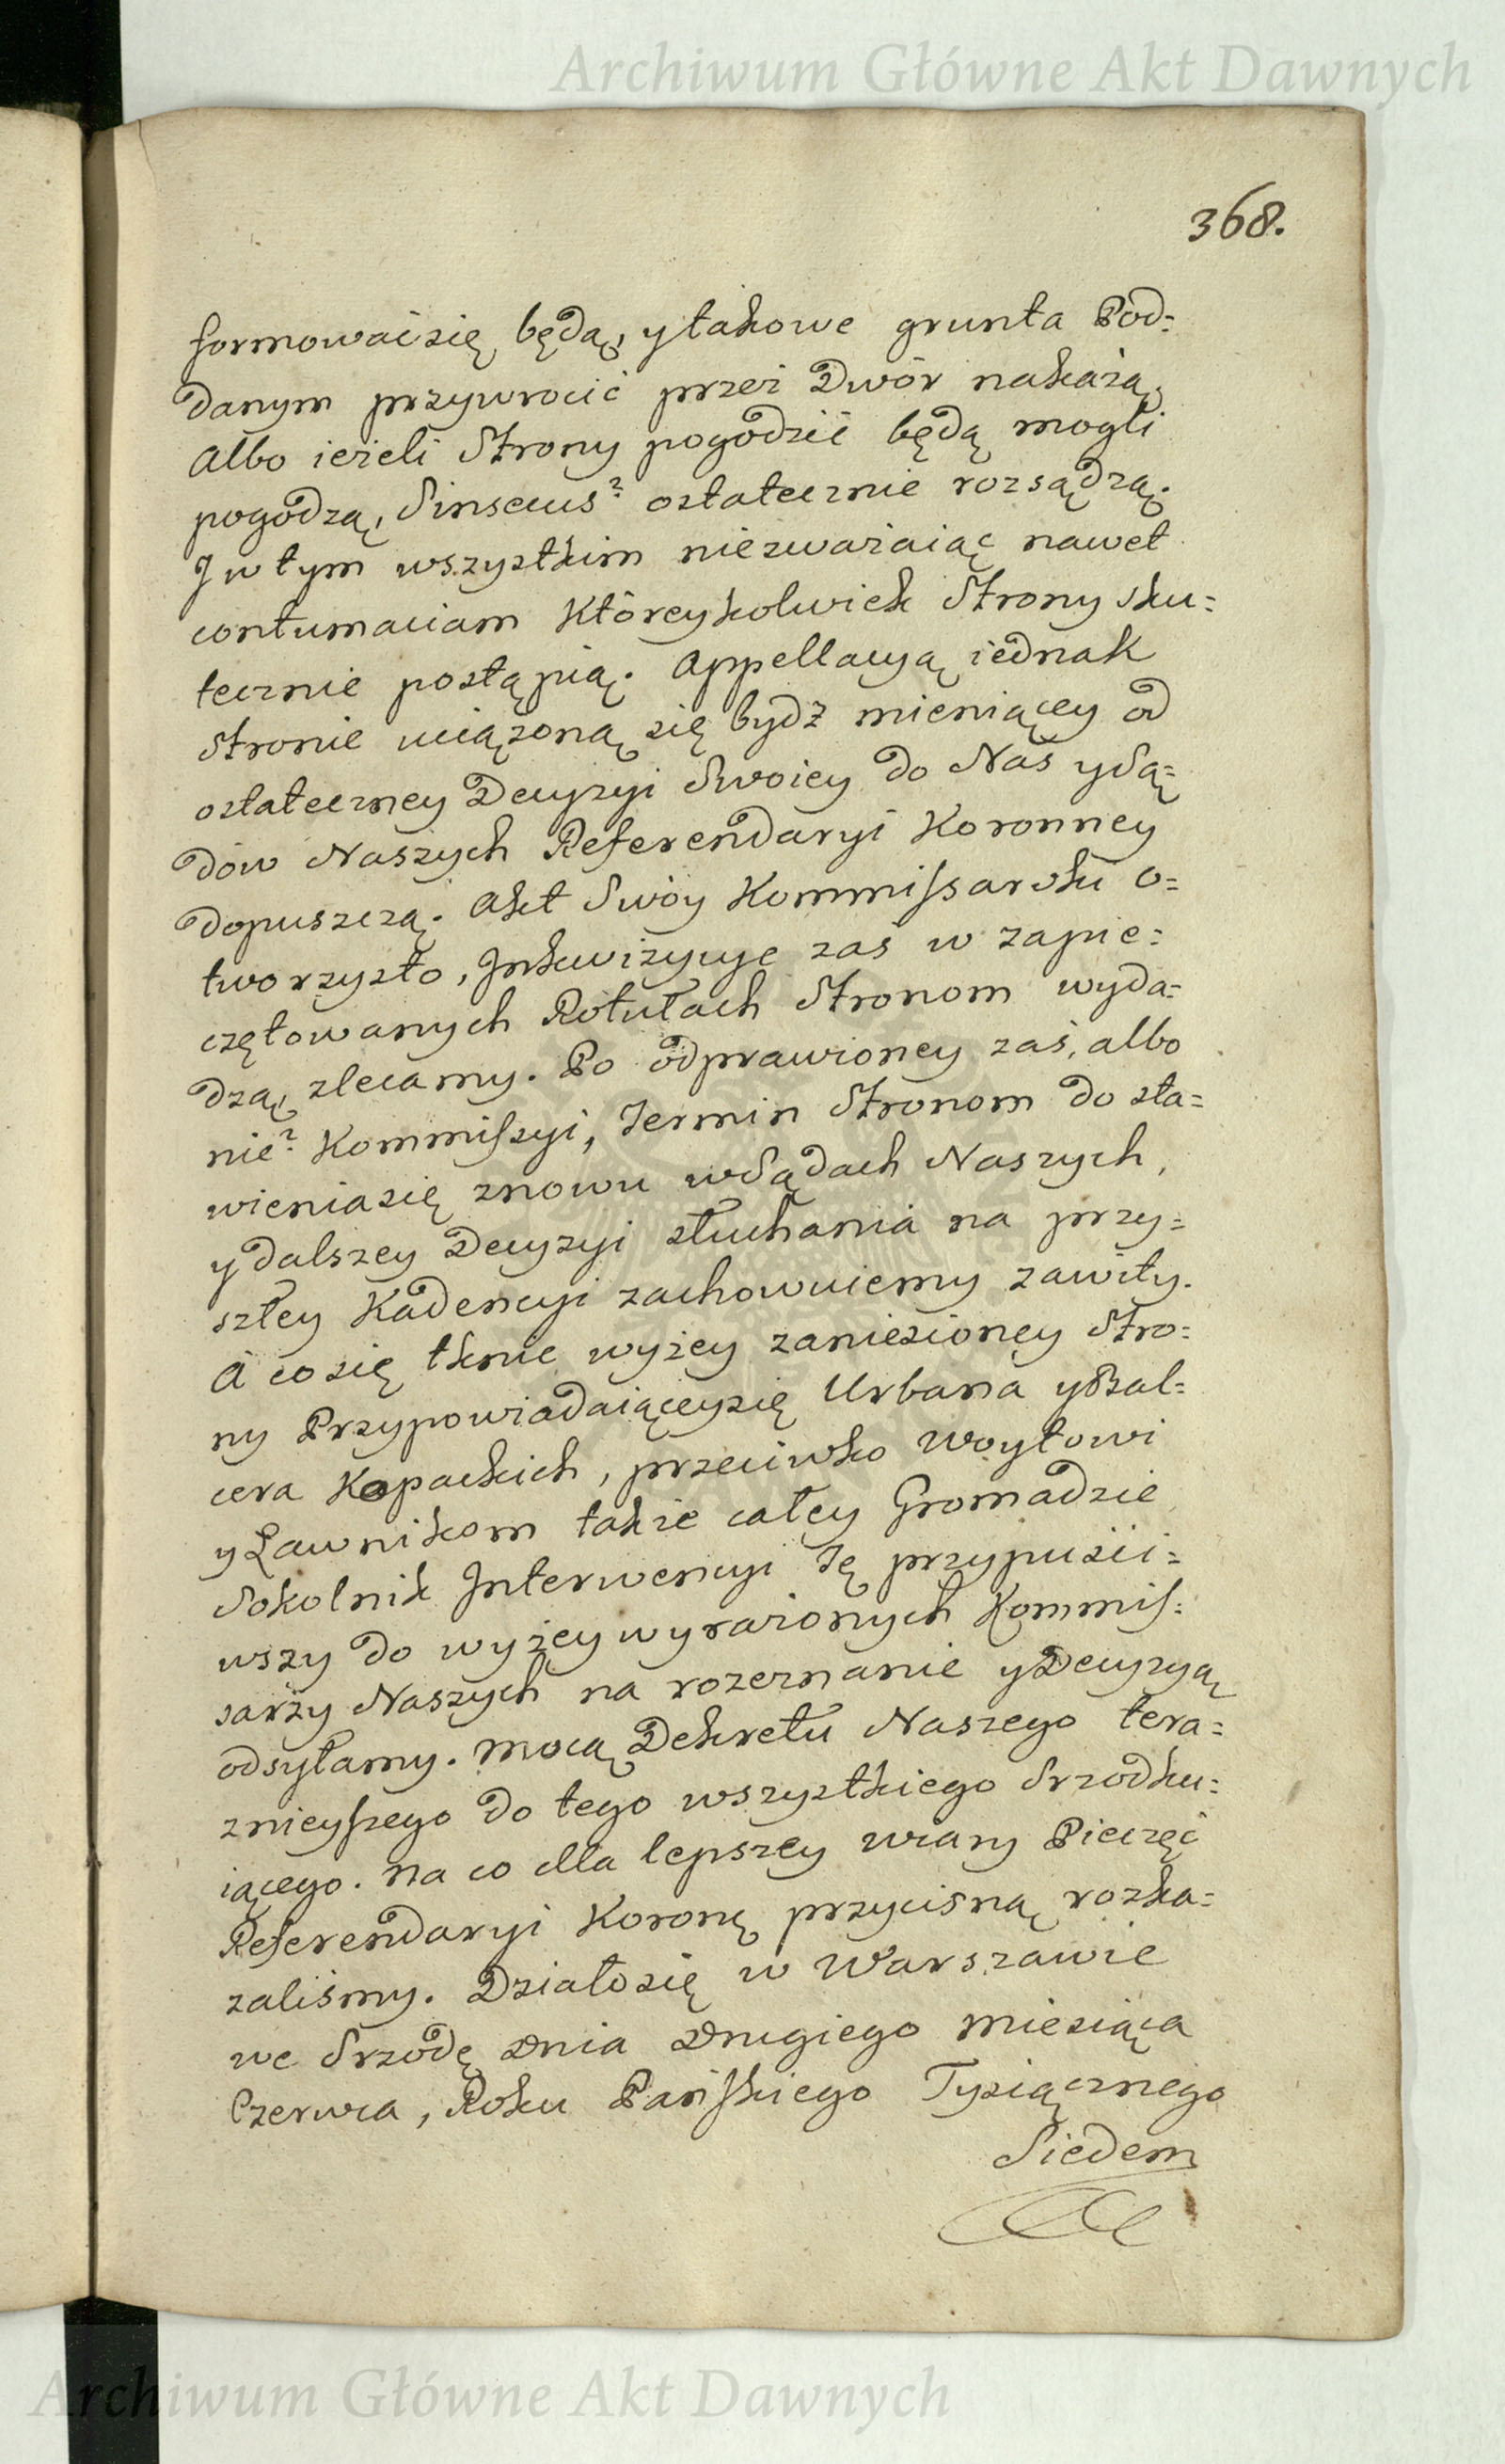 Archiwum Główne Akt Dawnych
368.
formować się będą, y takowe grunta Pod=
danym przywrocić przez Dwór nakażą,
Albo ieżeli Strony pogodzić będą mogli
pogodzą, Sinsecus? ostatecznie rozsądzą.
J w tym wszystkim niezważaiąc nawet
contumaciam Któreykolwiek Strony sku=
tecznie postąpią. Appellacyą iednak
Stronie uciążoną się bydź mieniącey od
ostateczney Decyzyi Swoiey do Nas y Są=
dów Naszych Referendaryi Koronney
dopuszczą. Akt Swóy Kommissarski o=
tworzysto, Jnkwizycye zaś w zapie=
czętowanych Rotułach Stronom wyda=
dzą, zlecamy. Po odprawioney zaś, albo
nie? Kommiszyi, Termin Stronom do sta=
wienia się znowu w Sądach Naszych,
y dalszey Decyzyi słuchania na przy=
szłey Kadencyi zachowuiemy zawity.
A co się tknie wyżey zaniesioney Stro=
ny Przypowiadaiącey się Urbana y Bal=
cera Kopackich, przeciwko Woytowi
y Ławnikom także całey Gromadzie
Sokolnik Jnterwencyi Tę przypuści=
wszy do wyżey wyrażonych Kommis=
sarzy Naszych na rozeznanie y Decyzyą
odsyłamy. Mocą Dekretu Naszego tera=
znieyszego do tego wszystkiego Srzodku=
iącego. Na co dla lepszey wiary Pieczęć
Referendaryi Koronę przycisną rozka=
zaliśmy. Działo się w Warszawie
we Srzodę Dnia Drugiego Miesiąca
Czerwca, Roku Pańskiego Tysiącznego
Siedem
Archiwum Główne Akt Dawnych